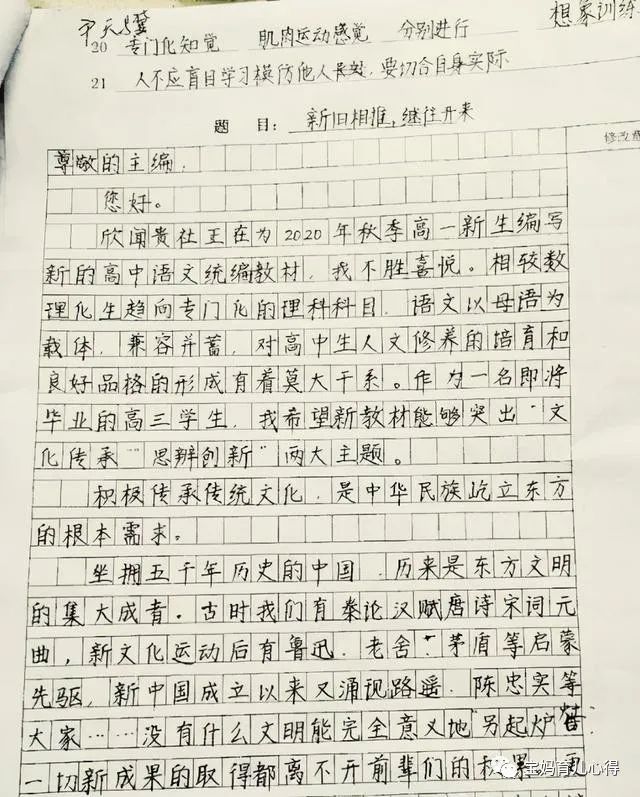 想象训练
20 专门化知觉 肌肉运动感觉 分别进行
21 人不应盲目学习模仿他人长处,要切合自身实际
题 目: 新旧相推,继往开来
修改
尊敬的主编,
您好。
欣闻贵社正在为2020年秋季高一新生编写
新的高中语文统编教材,我不胜喜悦。相较数
理化生趋向专门化的理科科目,语文以母语为
载体,兼容并蓄,对高中生人文修养的培育和
良好品格的形成有着莫大干系。作为一名即将
毕业的高三学生,我希望新教材能够突出“文
化传承”“思辨创新”两大主题。
积极传承传统文化,是中华民族屹立东方
的根本需求。
坐拥五千年历史的中国,历来是东方文明
的集大成者。古时我们有秦论汉赋唐诗宋词元
曲,新文化运动后有鲁迅、老舍、茅盾等启蒙
先驱,新中国成立以来又涌现路遥、陈忠实等
大家……没有什么文明能完全意义地“另起炉灶”
一切新成果的取得都离不开前辈们的
宝妈育儿心得